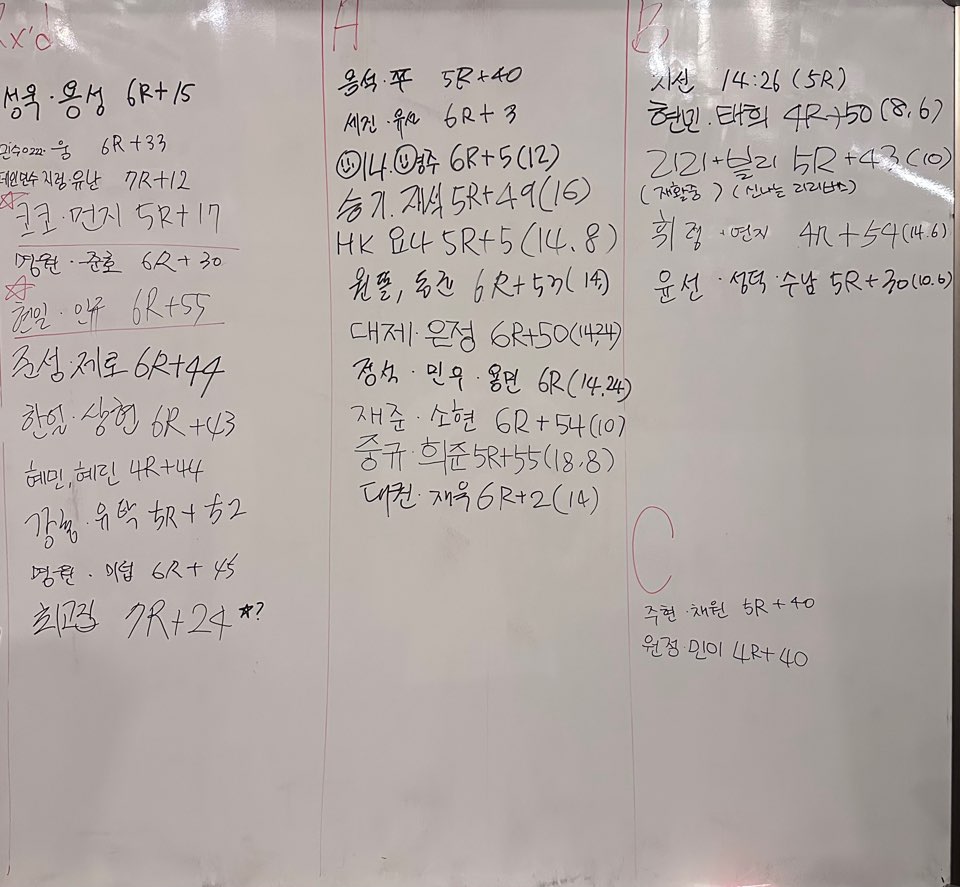 Rx'd
성욱·용성 6R+15
민수0222·웅 6R+33
데인민수 지광·유난 7R+12
코코·먼지 5R+17
명원·준호 6R+30
천일·인규 6R+55
준성·제로 6R+44
한얼·상현 6R+43
혜민,혜린 4R+44
유박 5R+52
명환·미섭 6R+45
최고집 7R+24 ☆?
A
음석·푸 5R+40
세진·유신 6R+3
이나·영주 6R+5(12)
승기.재석 5R+49(16)
HK 요나 5R+5(14.8)
원뜰, 동건 6R+53(14)
대제·은정 6R+50(14,24)
정석·민우·용민 6R(14.24)
재준·소현 6R+54(10)
중규·희준 5R+55(18.8)
대권·재욱 6R+2(14)
B
지선 14:26 (5R)
현민·태희 4R+50(8,6)
리리+빌리 5R+43(10)
(재활중) (신나는 리리버스)
휘령·연지 4R+54(14.6)
윤선·성덕·수남 5R+30(10.6)
C
주현·채원 5R+40
원정·민이 4R+40